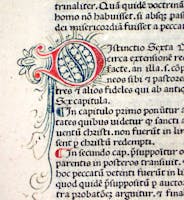 trinaliter. Quá quidē doctrin
homo nō habuisset, si absq; pas
dei misericordiā fuisset a pecca
Distinctio Sexta
circa extensione re
facte, an illa. s. cō
neos sibi & pastor
tres & alios fideles qui ab anti
Sex capitula.
In capitulo primo ponūtur a
quibus uidetur q sancti a
uentū christi, non fuerint in lu
sent p christū redempti.
In secundo cap. ppositum quo
parentis in posteros transiut.
hoc peccatū uetenti fuerit in lu
quod quidē psuppositū & aucto
tra probatōez arguitur, & final